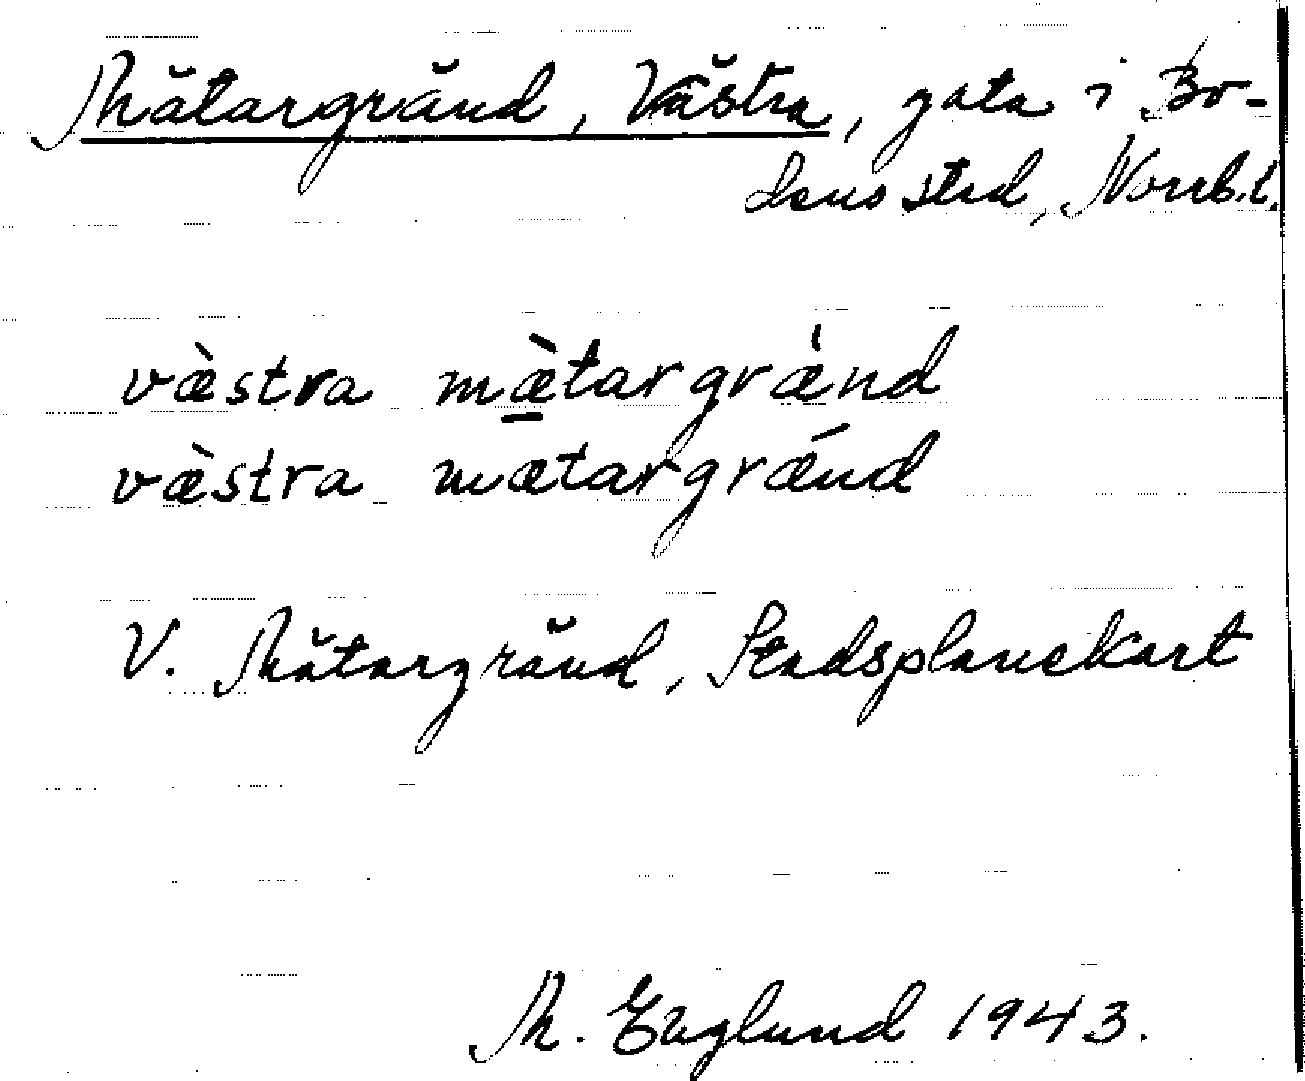 Mätargränd, Västra, gata i Bo-
dens stad, Norrb.l.
væ̀stra mæ̲̀targrǽnd
væ̀stra mætargrǽnd
V. Mätargränd, Stadsplanekart
M. Englund 1943.